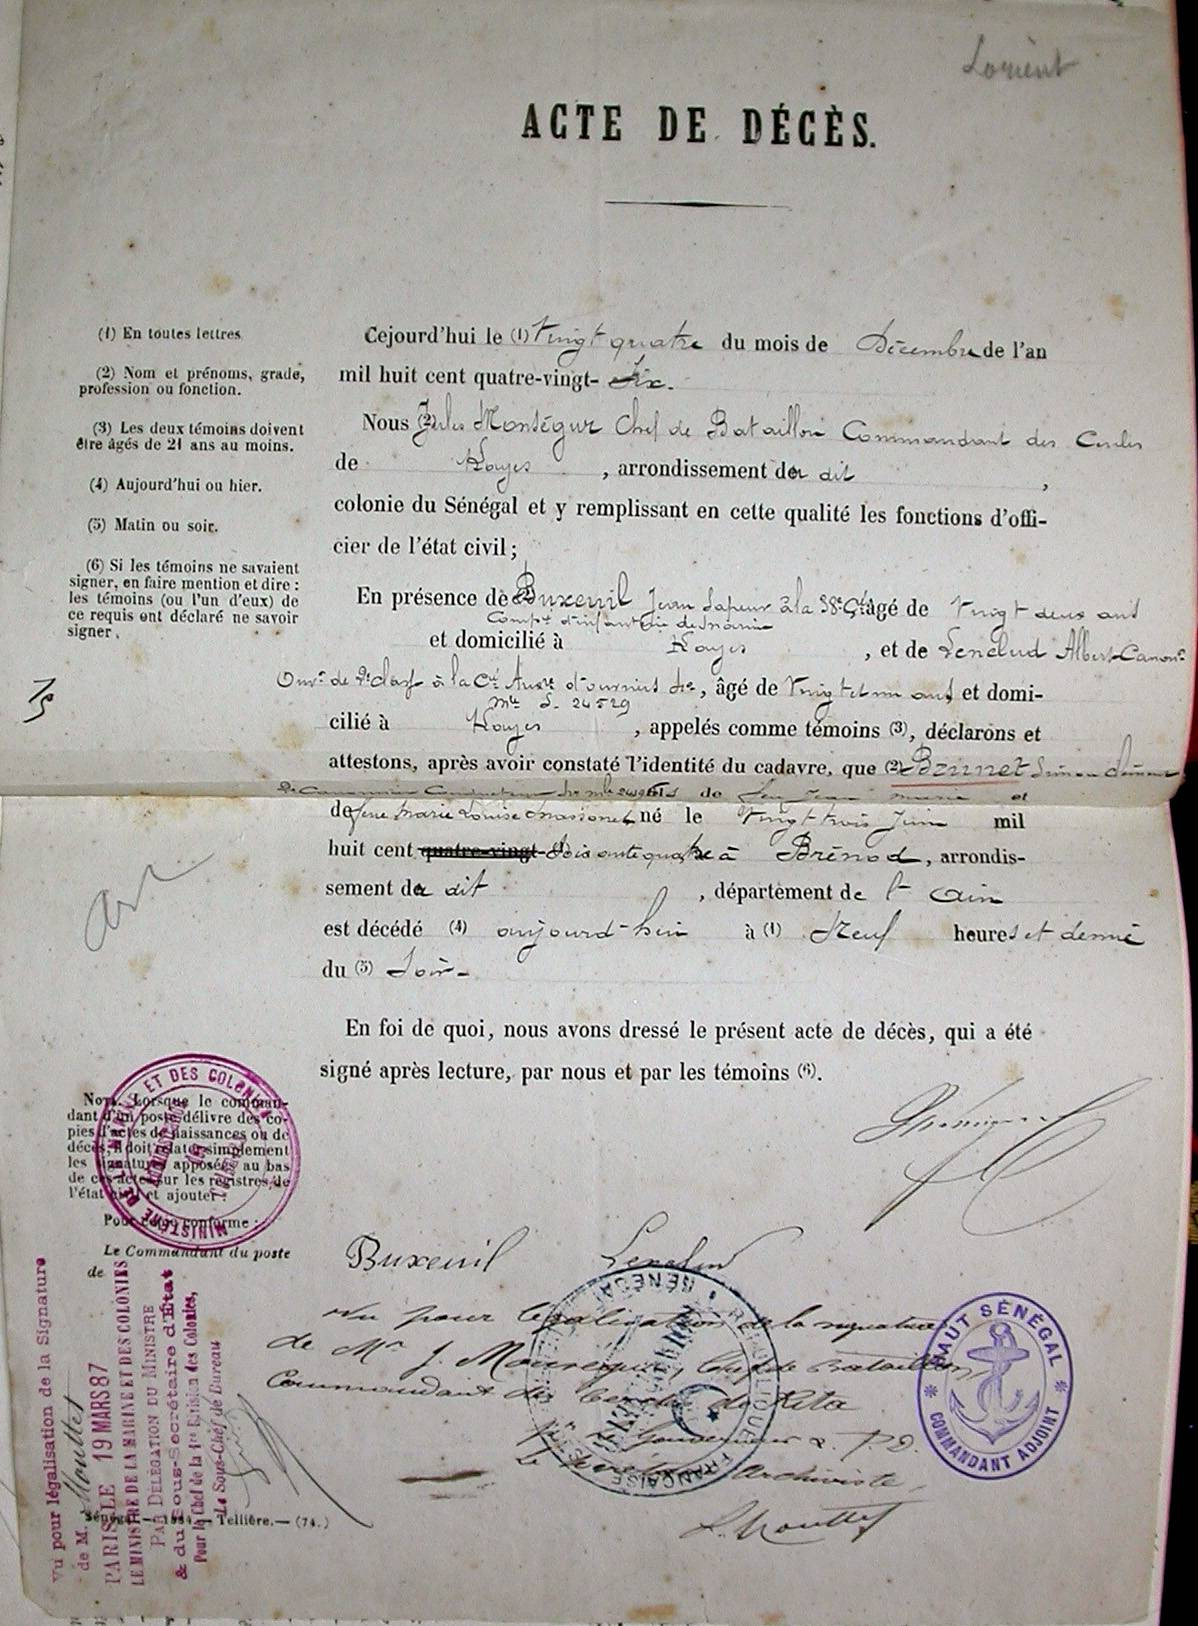 Lorient
ACTE DE DÉCÈS.
(1) En toutes lettres
(2) Nom et prénoms, grade,
profession ou fonction.
(3) Les deux témoins doivent
être âgés de 21 ans au moins.
(4) Aujourd'hui ou hier.
(5) Matin ou soir.
(6) Si les témoins ne savaient
signer, en faire mention et dire :
les témoins (ou l'un d'eux) de
ce requis ont déclaré ne savoir
signer.
Cejourd'hui le (1) Vingt quatre du mois de Décembre de l'an
mil huit cent quatre-vingt- Six.
Nous (2) Jules Monségur Chef de Bataillon Commandant des Cercles
de Kayes, arrondissement du dit,
colonie du Sénégal et y remplissant en cette qualité les fonctions d'offi-
cier de l'état civil ;
En présence de Buxeuil Jean Sapeur à la 38e Cie âgé de Vingt deux ans
Compe d'infanterie de Marine
et domicilié à Kayes, et de Lenclud Albert Canonr
Ouvr de 2e classe à la Cie Auxre d'ouvriers, âgé de Vingt et un ans et domi-
Mle 24529
cilié à Kayes, appelés comme témoins (3), déclarons et
attestons, après avoir constaté l'identité du cadavre, que (2) Brunet Simon
2e Canonnier Conducteur de feu Jean Marie et
de feue Marie Louise né le Vingt trois Juin mil
huit cent quatre-vingt- Soixante quatre à Brénod, arrondis-
sement du dit, département de l'Ain
est décédé (4) aujourd'hui à (1) Neuf heures et demie
du (5) Soir-
En foi de quoi, nous avons dressé le présent acte de décès, qui a été
signé après lecture, par nous et par les témoins (6).
NOTA. Lorsque le comman-
dant d'un poste délivre des co-
pies d'actes de naissances ou de
décès, il doit relater simplement
les signatures apposées au bas
de ces actes sur les registres de
l'état civil et ajouter :
Pour copie conforme :
Le Commandant du poste
de
MINISTÈRE DE LA MARINE ET DES COLONIES
Buxeuil Lenclud
Vu pour légalisation de la signature
de Mr J. Monségur, Chef de Bataillon
Commandant du Cercle de Kita
Pr le Gouverneur & P.O.
Le Archiviste,
L. Mouttet
RÉPUBLIQUE FRANÇAISE
SÉNÉGAL
HAUT SÉNÉGAL
COMMANDANT ADJOINT
Vu pour légalisation de la Signature
de M. Mouttet
PARIS LE 19 MARS 87
LE MINISTRE DE LA MARINE ET DES COLONIES
PAR DÉLÉGATION DU MINISTRE
& du Sous-Secrétaire d'État
Pour le Chef de la 1re Division des Colonies,
Le Sous-Chef de Bureau
Sénégal — 1884. — Tellière. — (74.)